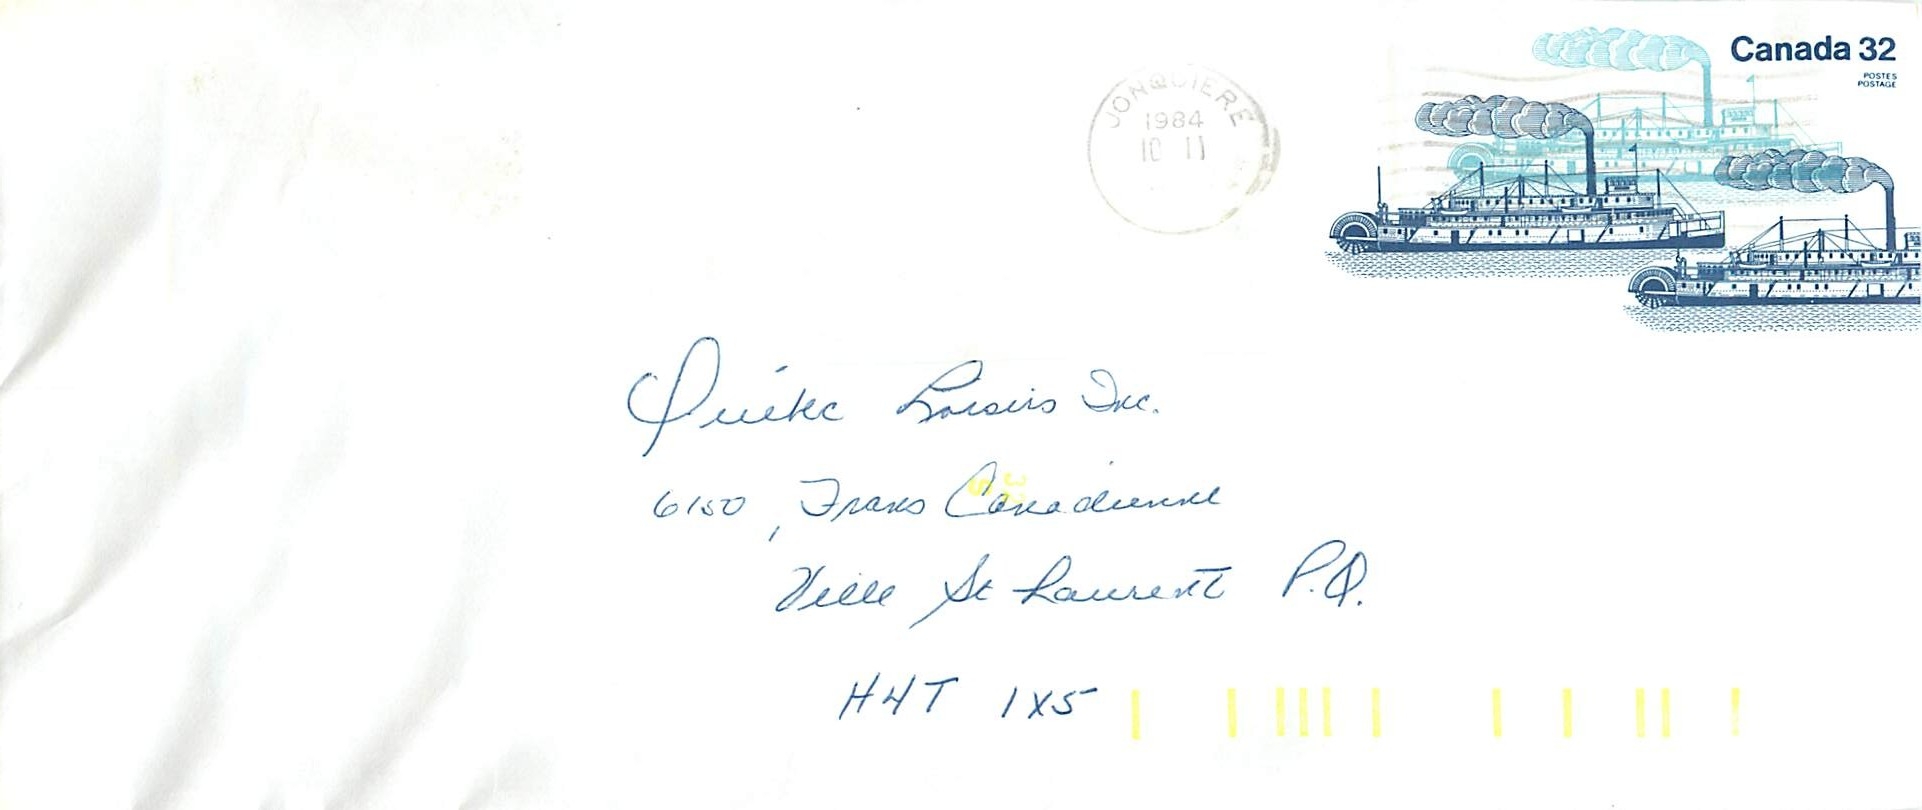 Canada 32
POSTES
POSTAGE
JONQUIERE
1984
10 11
Québec Loisirs Inc.
6150, Trans Canadienne
32
S
Ville St Laurent P.Q.
H4T 1X5